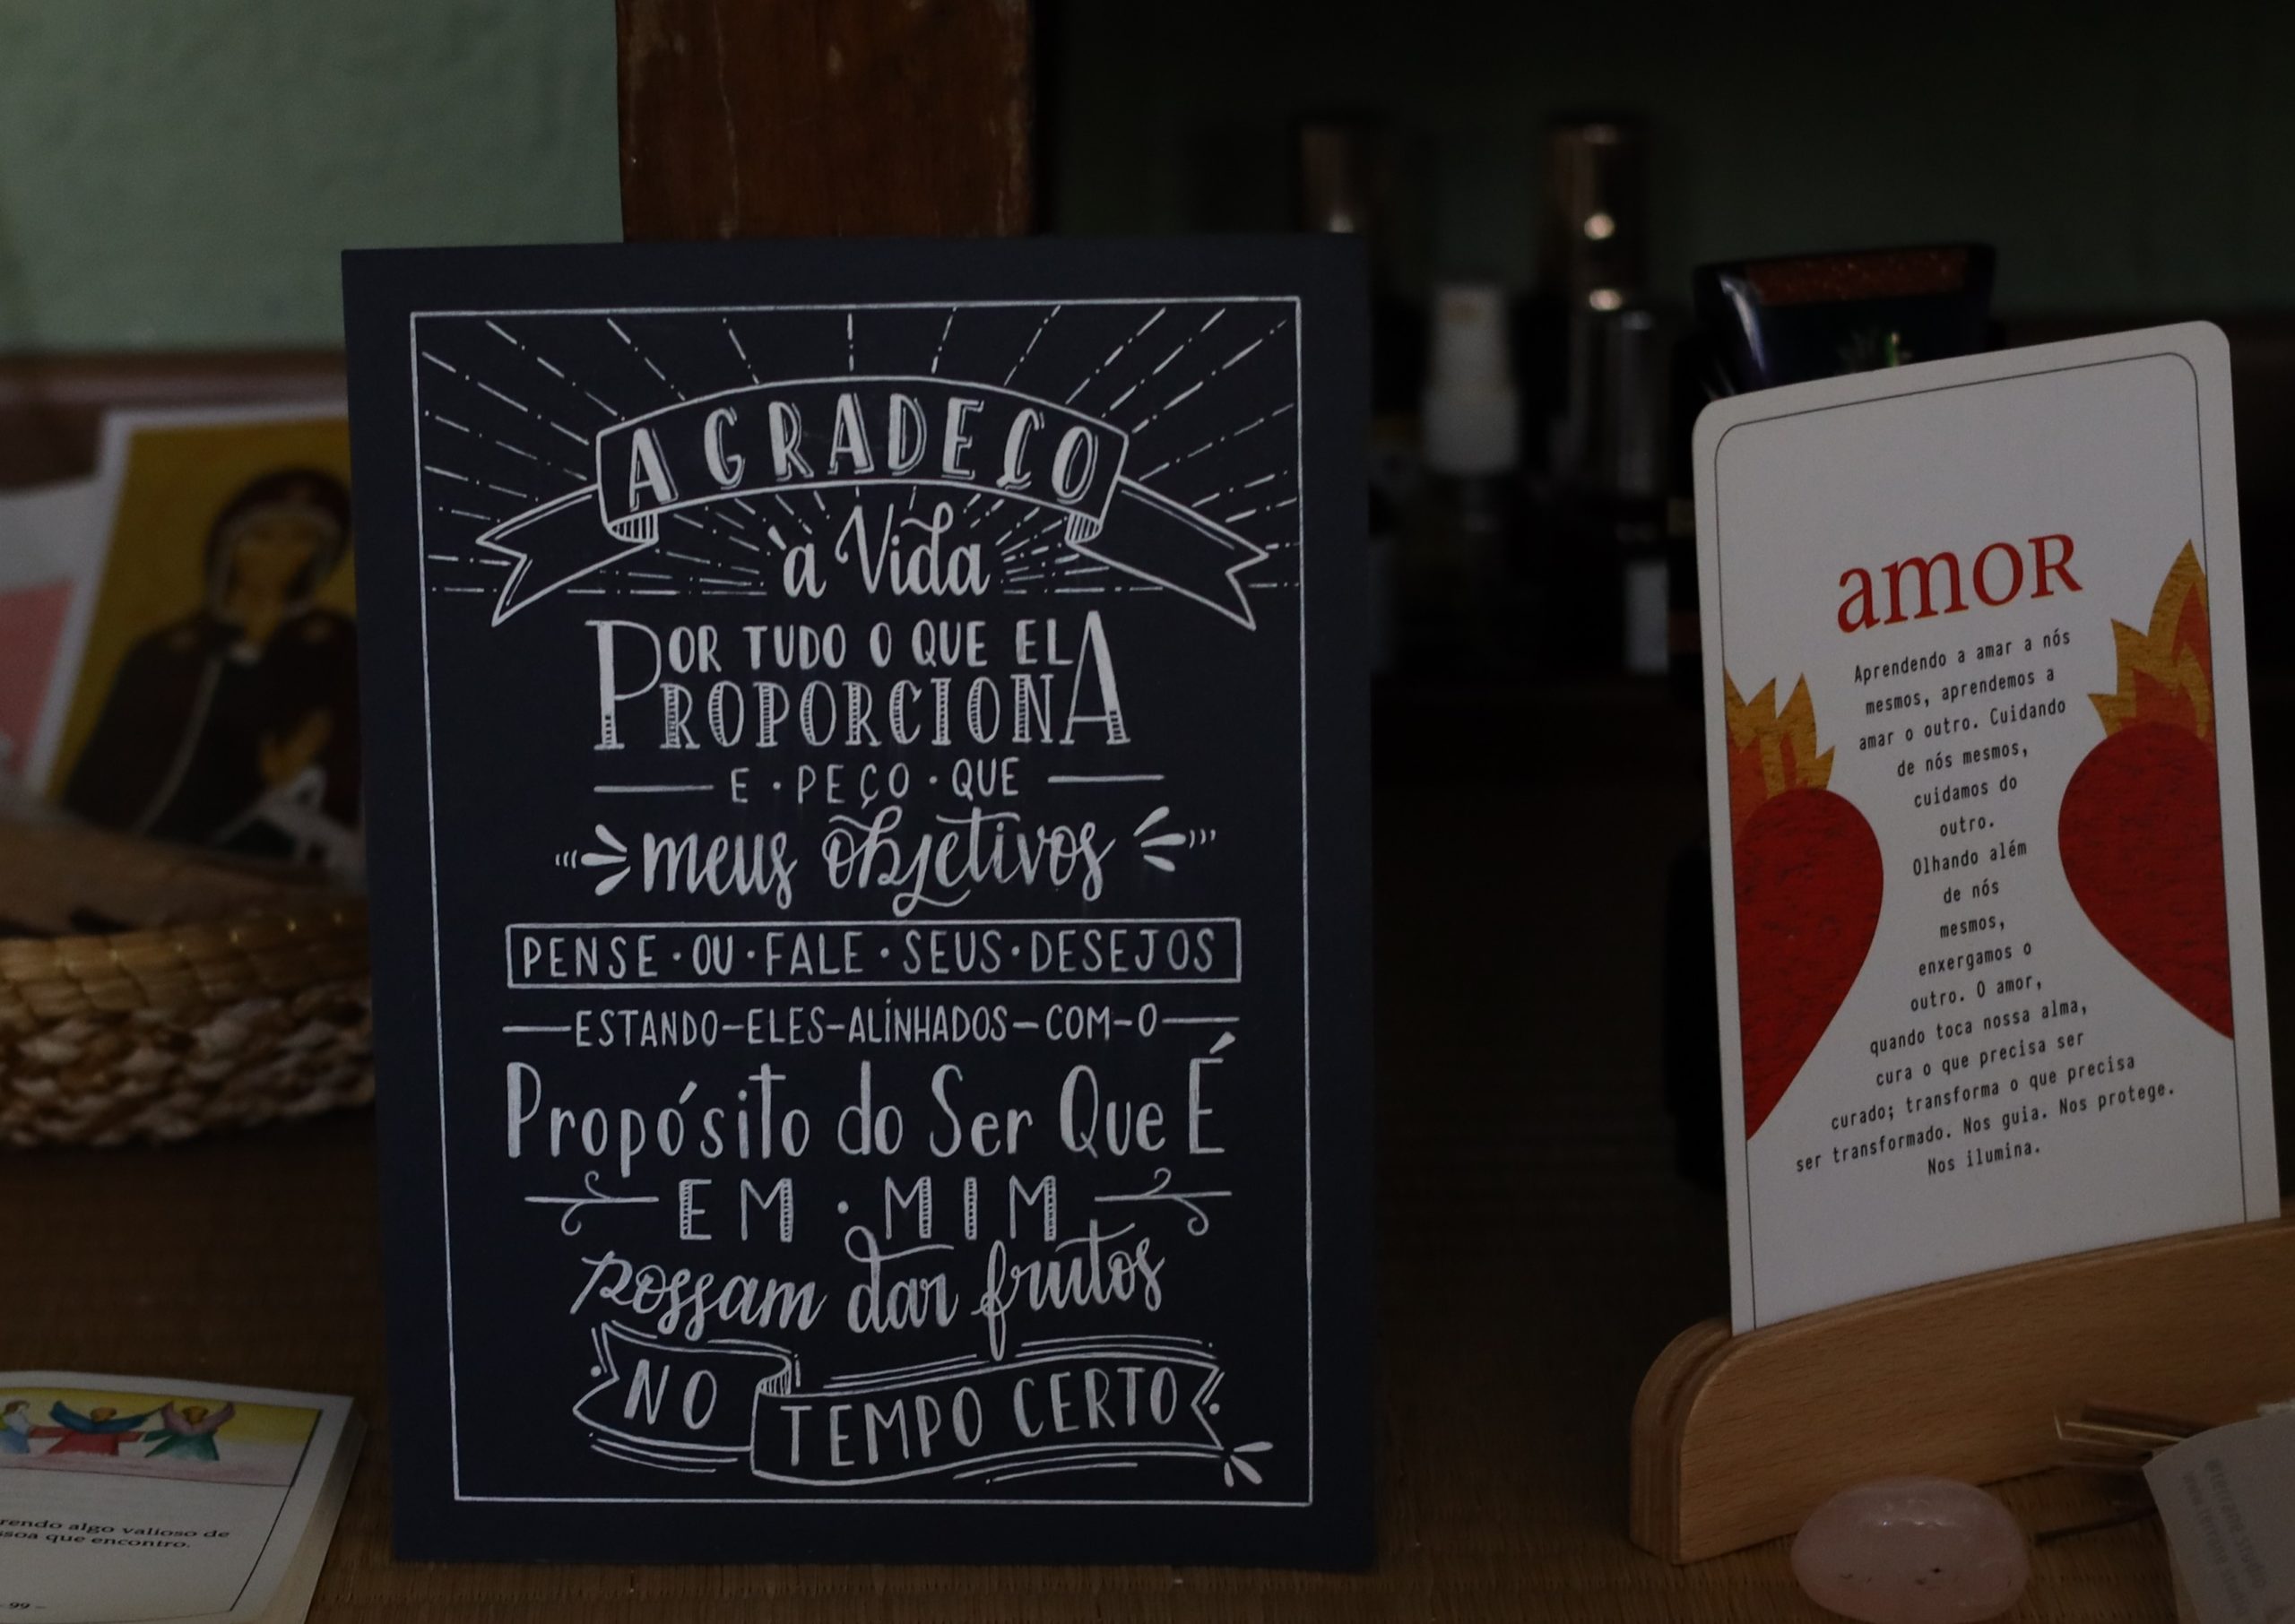 AGRADEÇO
à Vida
POR TUDO O QUE ELA
PROPORCIONA
E · PEÇO · QUE
meus objetivos
PENSE · OU · FALE · SEUS · DESEJOS
ESTANDO-ELES-ALÍNHADOS-COM-O
Propósito do Ser Que É
EM · MIM
possam dar frutos
NO TEMPO CERTO
amOR
Aprendendo a amar a nós
mesmos, aprendemos a
amar o outro. Cuidando
de nós mesmos,
cuidamos do
outro.
Olhando além
de nós
mesmos,
enxergamos o
outro. O amor,
quando toca nossa alma,
cura o que precisa ser
curado; transforma o que precisa
ser transformado. Nos guia. Nos protege.
Nos ilumina.
rendo algo valioso de
ssoa que encontro.
- 99 -